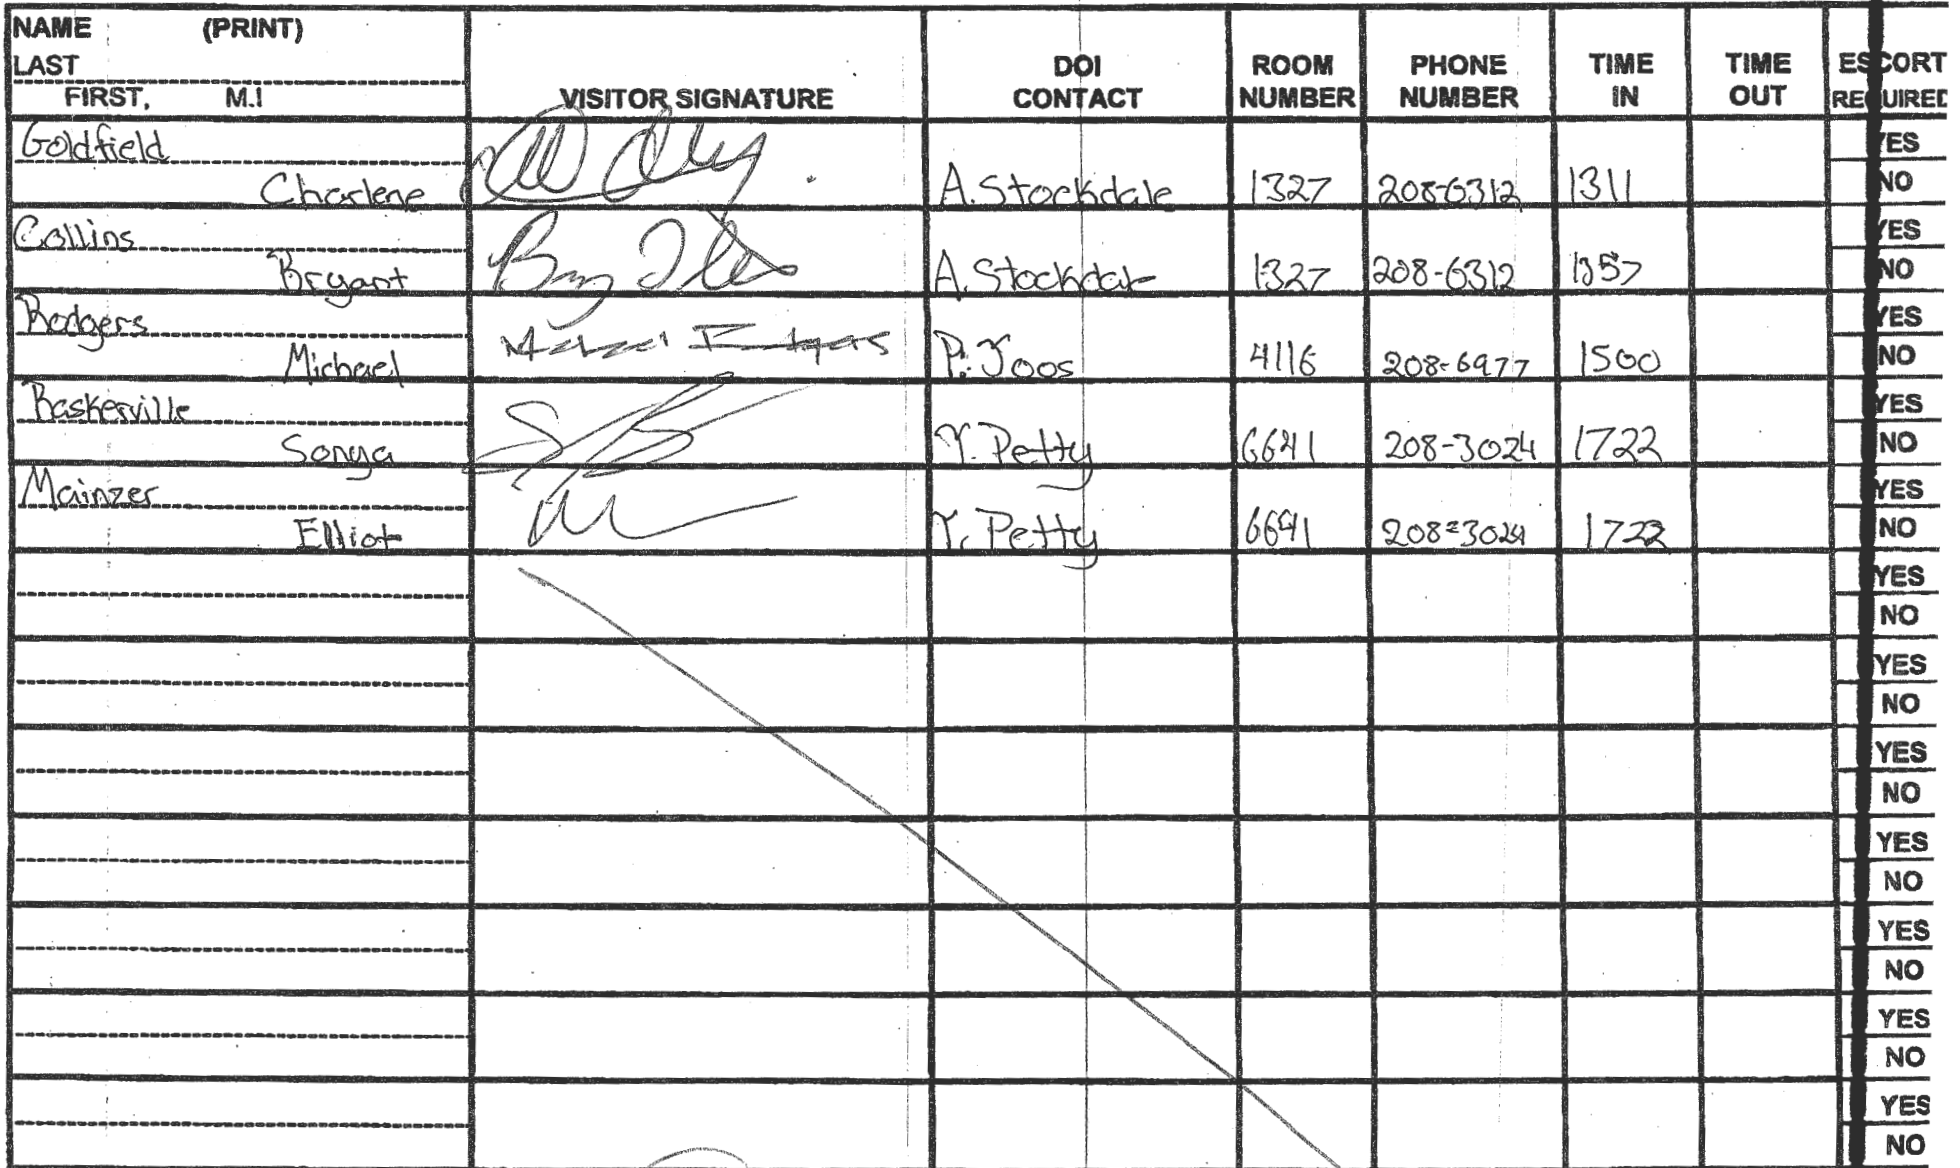 NAME (PRINT)
LAST
FIRST, M.I
VISITOR SIGNATURE
DOI CONTACT
ROOM NUMBER
PHONE NUMBER
TIME IN
TIME OUT
ESCORT REQUIRED
Goldfield YES
Charlene A. Stockdale 1327 208-6312 1311 NO
Collins YES
Bryant A. Stockdale 1327 208-6312 1357 NO
Rodgers YES
Michael Michael Rodgers P. Joos 4116 208-6977 1500 NO
Baskerville YES
Sonya Y. Petty 6641 208-3024 1722 NO
Mainzer YES
Elliot Y. Petty 6641 208-3024 1722 NO
YES
NO
YES
NO
YES
NO
YES
NO
YES
NO
YES
NO
YES
NO